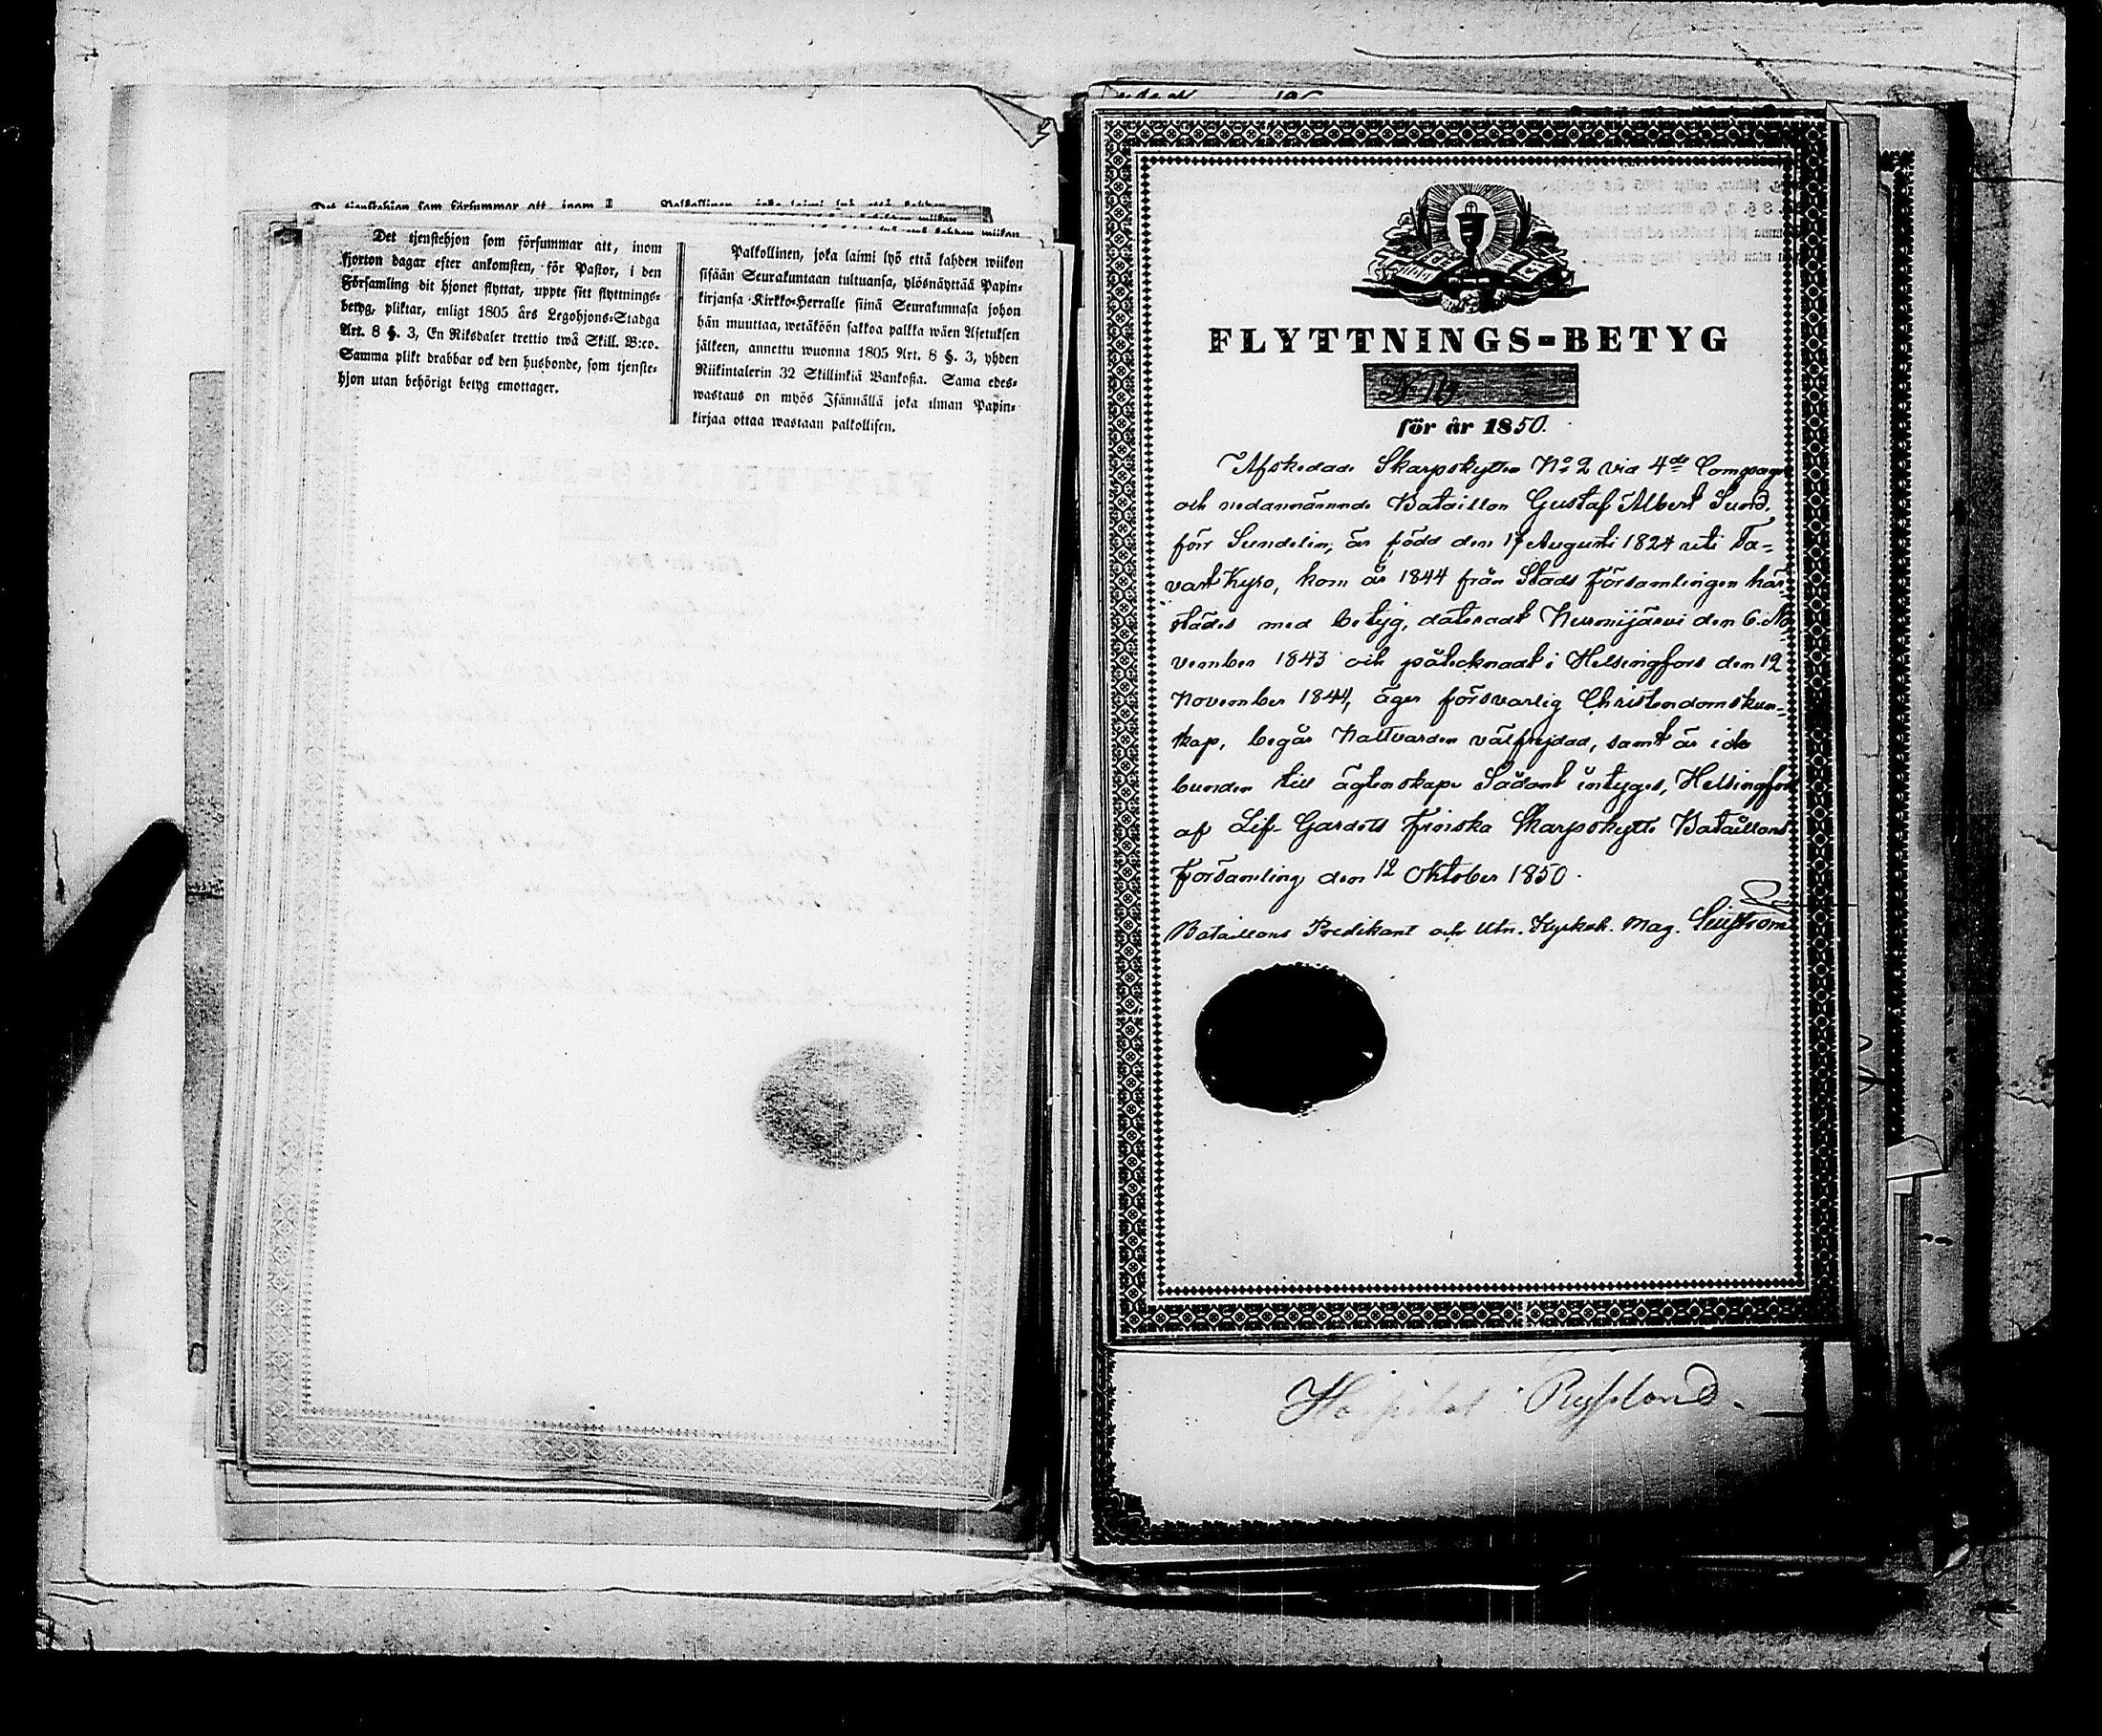 Det tjenstehjon som försummar att, inom
fjorton dagar efter ankomsten, för Pastor, i den
Församling dit hjonet flyttat, uppte sitt flyttnings-
betyg, pliktar, enligt 1805 års Legohjons-Stadga
Art. 8 §. 3, En Riksdaler trettio twå Skill. B:co.
Samma plikt drabbar ock den husbonde, som tjenste-
hjon utan behörigt betyg emottager.
Palkollinen, joka laimi lyö että kahden wiikon
sisään Seurakuntaan tultuansa, ylösnäyttää Papin-
kirjansa Kirkko-Herralle siinä Seurakunnasa johon
hän muuttaa, wetäköön sakkoa palkka wäen Asetuksen
jälkeen, annettu wuonna 1805 Art. 8 §. 3, yhden
Riikintalerin 32 Skillinkiä Bankosa. Sama edes-
wastaus on myös Isännällä joka ilman Papin-
kirjaa ottaa wastaan palkollisen.
FLYTTNINGS-BETYG
för år 1850.
Afskedade Skarpskytten No 2 vid 4de Compagni
och nedannämnde Bataillon Gustaf Albert Sund,
förr Sundelin, är född den 17 Augusti 1824 uti Ta-
vastKyro, kom år 1844 från Stads Församlingen här-
städes med betyg, dateradt Nurmijärvi den 6. No-
vember 1843 och påtecknadt i Helsingfors den 12
November 1844, äger försvarlig Christendomskun-
skap, begår Nattvarden välfrejdad, samt är icke
bunden till ägtenskap. Sådant intygas, Helsingfors
af Lif-Gardets Finska Skarpskytte Bataillons
Församling den 12 Oktober 1850.
Bataillons Predikant och Utn. Kyrkoh. Mag.
Hospitalet Ryssland.